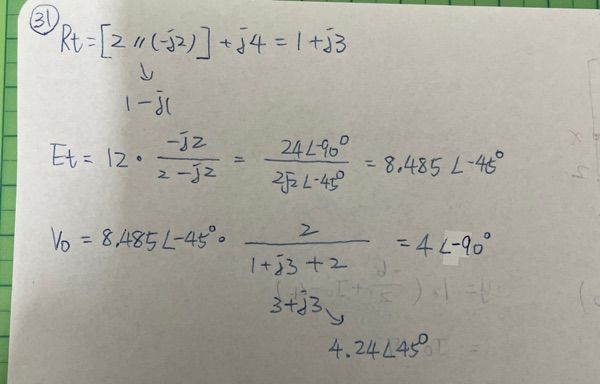 31
Rt = [2 // (-j2)] + j4 = 1 + j3
↓
1 - j1
Et = 12 · -j2 / 2 - j2 = 24∠-90° / 2√2∠-45° = 8.485∠-45°
Vo = 8.485∠-45° · 2 / 1 + j3 + 2 = 4∠-90°
3 + j3
↘
4.24∠45°